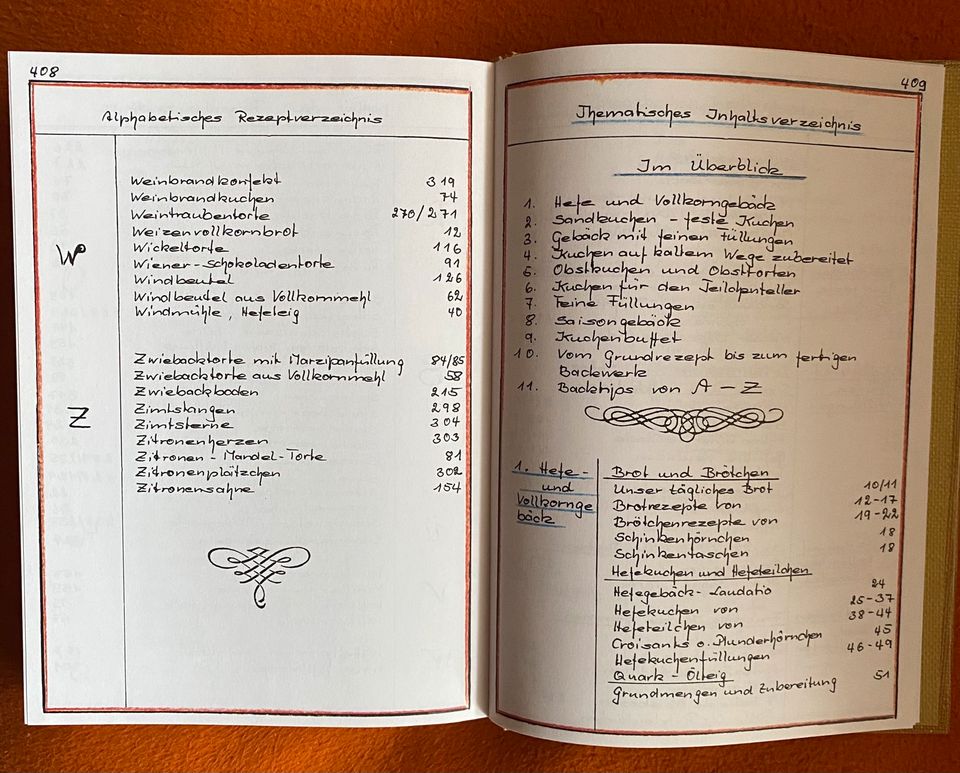 408
Alphabetisches Rezeptverzeichnis
W
Weinbrandkonfekt 319
Weinbrandkuchen 74
Weintraubentorte 270/271
Weizenvollkornbrot 12
Wickeltorte 116
Wiener-Schokoladentorte 91
Windbeutel 126
Windbeutel aus Vollkornmehl 62
Windmühle, Hefeteig 40
Z
Zwiebacktorte mit Marzipanfüllung 84/85
Zwiebacktorte aus Vollkornmehl 58
Zwiebackboden 215
Zimtstangen 298
Zimtsterne 304
Zitronenherzen 303
Zitronen-Mandel-Torte 81
Zitronenplätzchen 302
Zitronensahne 154
409
Thematisches Inhaltsverzeichnis
Im Überblick
1. Hefe und Vollkorngebäck
2. Sandkuchen - feste Kuchen
3. Gebäck mit feinen Füllungen
4. Kuchen auf kaltem Wege zubereitet
5. Obstkuchen und Obsttorten
6. Kuchen für den Teilchenteller
7. Feine Füllungen
8. Saisongebäck
9. Kuchenbuffet
10. Vom Grundrezept bis zum fertigen
Backwerk
11. Backtips von A - Z
1. Hefe-
und
Vollkornge
bäck
Brot und Brötchen
Unser tägliches Brot 10/11
Brotrezepte von 12-17
Brötchenrezepte von 19-22
Schinkenhörnchen 18
Schinkentaschen 18
Hefekuchen und Hefeteilchen
Hefegebäck-Laudatio 24
Hefekuchen von 25-37
Hefeteilchen von 38-44
Croisants o. Plunderhörnchen 45
Hefekuchenfüllungen 46-49
Quark-Ölteig
Grundmengen und Zubereitung 51